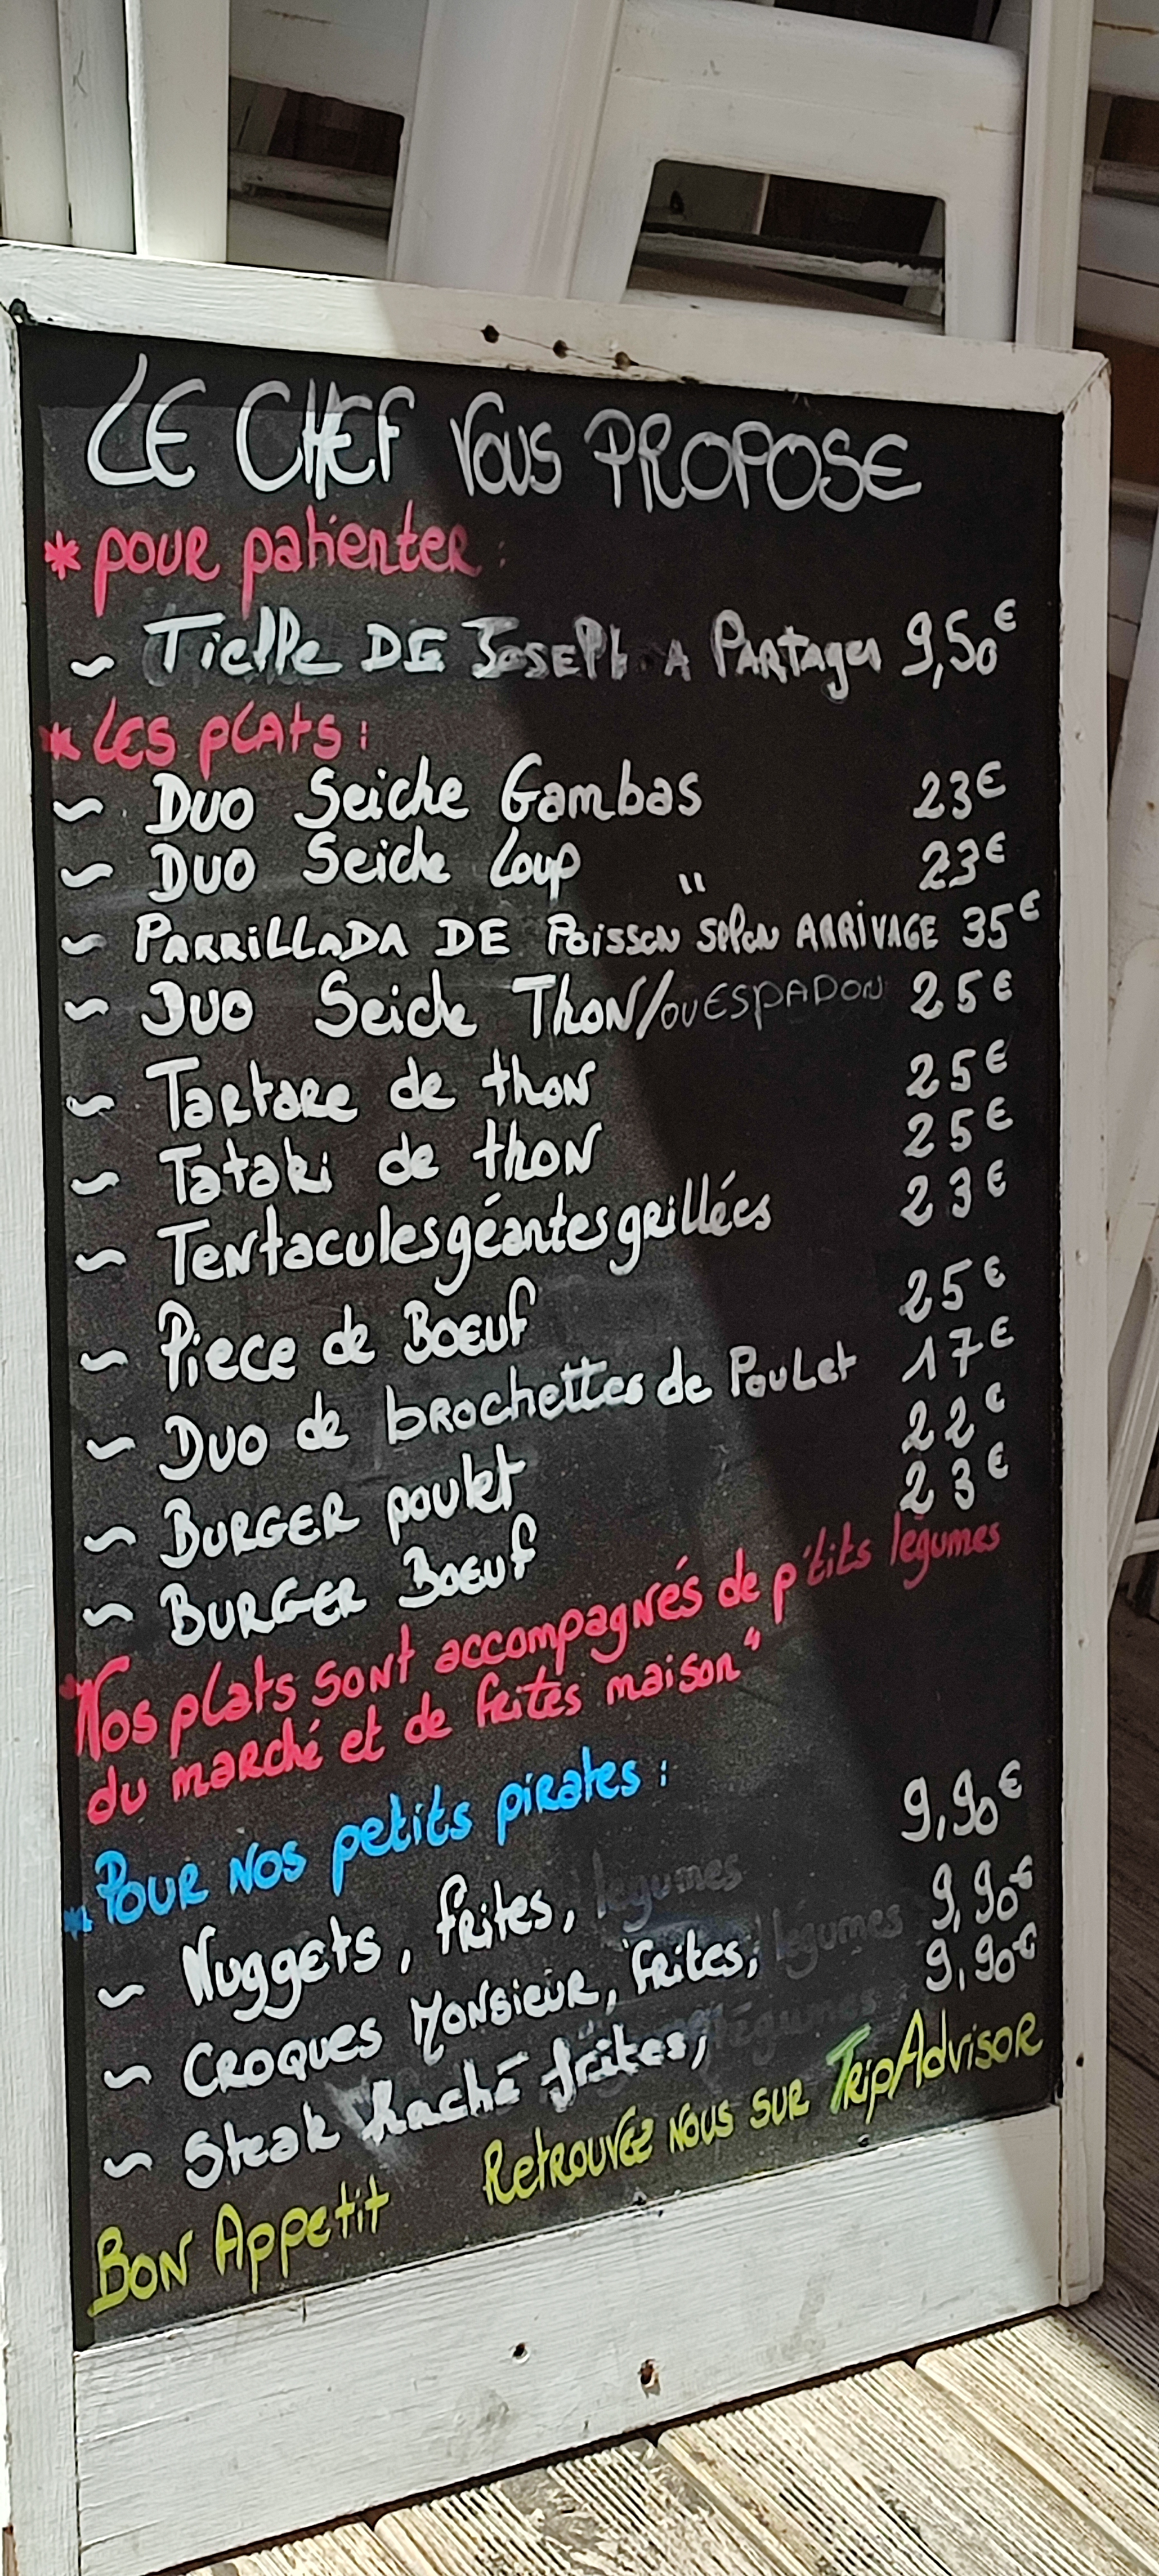 LE CHEF VOUS PROPOSE
* pour patienter :
~ Tielle DE JOSEPH A PARtager 9,50€
* LES PLATS :
~ DUO Seiche Gambas 23€
~ DUO Seiche Loup 23€
~ PARRILLADA DE Poisson "selon ARRIVAGE 35€
~ DUO Seiche THON/ou ESPADON 25€
~ Tartare de thon 25€
~ Tataki de thon 25€
~ Tentacules géantes grillées 23€
~ Piece de Boeuf 25€
~ Duo de brochettes de Poulet 17€
~ BURGER poulet 22€
~ BURGER Boeuf 23€
"Nos plats sont accompagnés de p'tits légumes
du marché et de frites maison"
* Pour nos petits pirates :
~ Nuggets, frites, légumes 9,90€
~ CROQUES MONSIEUR, frites, légumes 9,90€
~ Steak haché frites, légumes 9,90€
Bon Appetit Retrouvez nous sur TripAdvisor